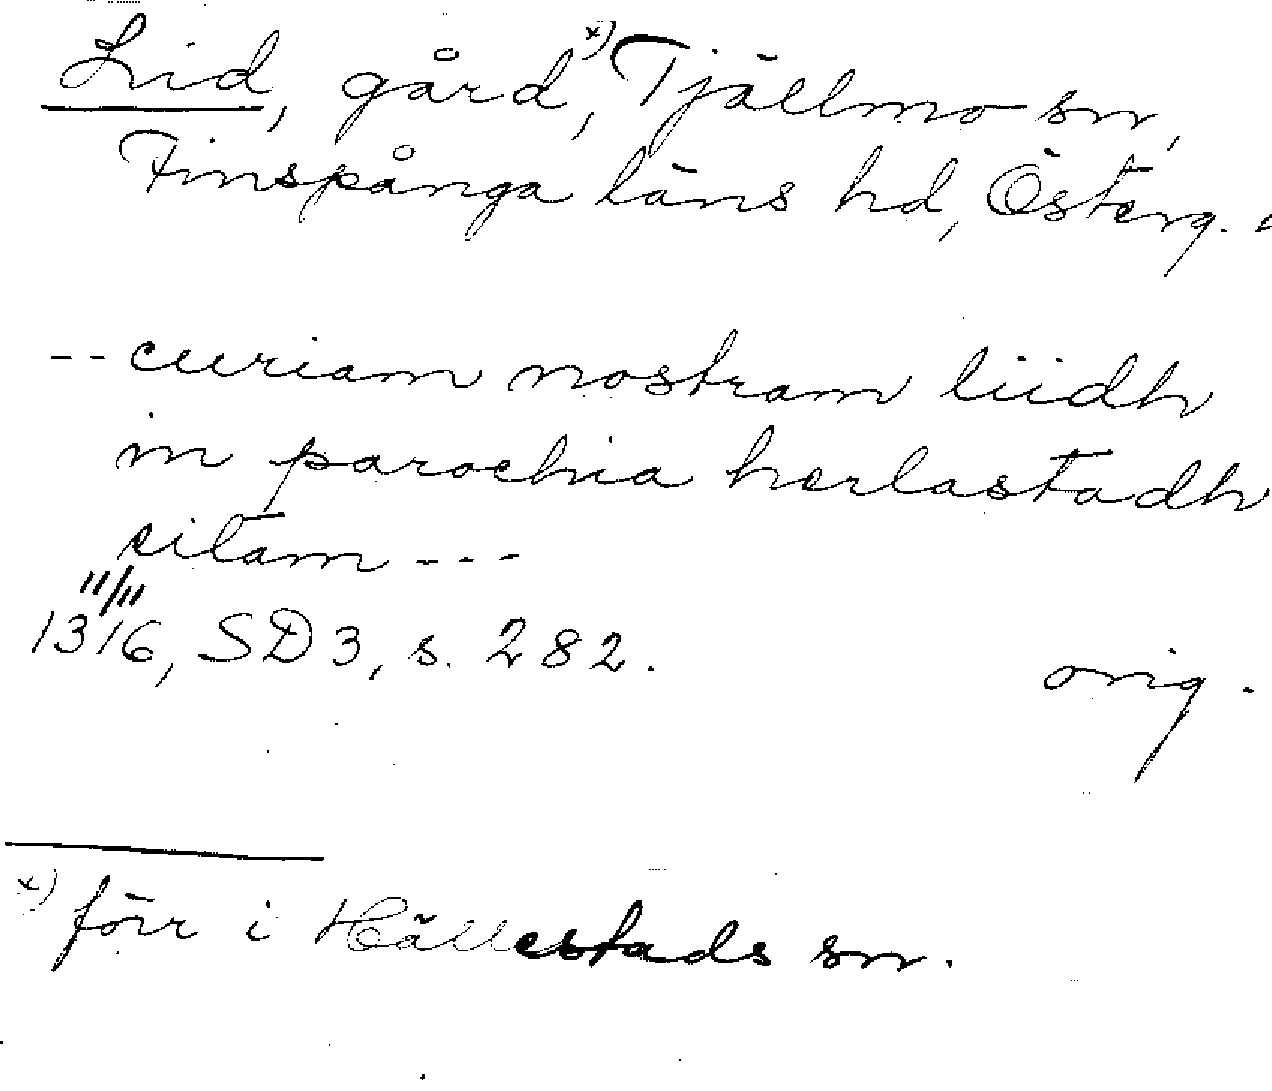 Lid, gård,x) Tjällmo sn,
Finspånga läns hd, Österg.
-- curiam nostram liidh
in parochia herlastadh
citam ---
11/11
1316, SD 3, s. 282.
orig.
x) förr i Hällestads sn.